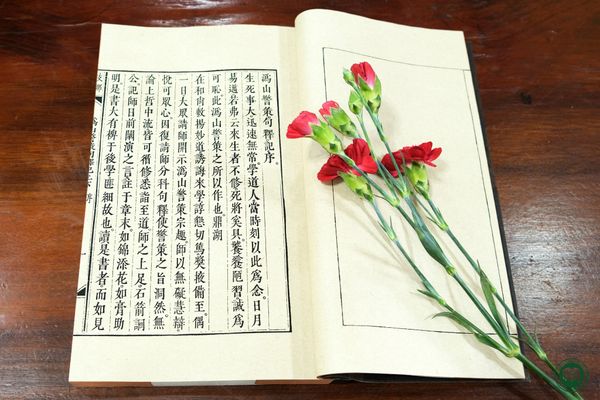 溈山警策句釋記序。
生死事大迅速無常學道人當時刻以此爲念。日月
易邁若弗云來生者不修死將奚具陋習誠爲
可恥此溈山警策之所以作也鼎湖
在和尚敷揚妙道誘誨來學諄懇切篤獎掖備至。偶
一日大眾請師開示溈山警策宗趣。師以無礙慧辯
悅可眾心因復請師分科句釋使警策之旨洞然。無
論上哲中流皆可循修悉詣至道師之上足石箭
公記師日前闡演之言註于章末如錦添花如膏助
明是書大有裨于後學匪細故也讀是書者而如見